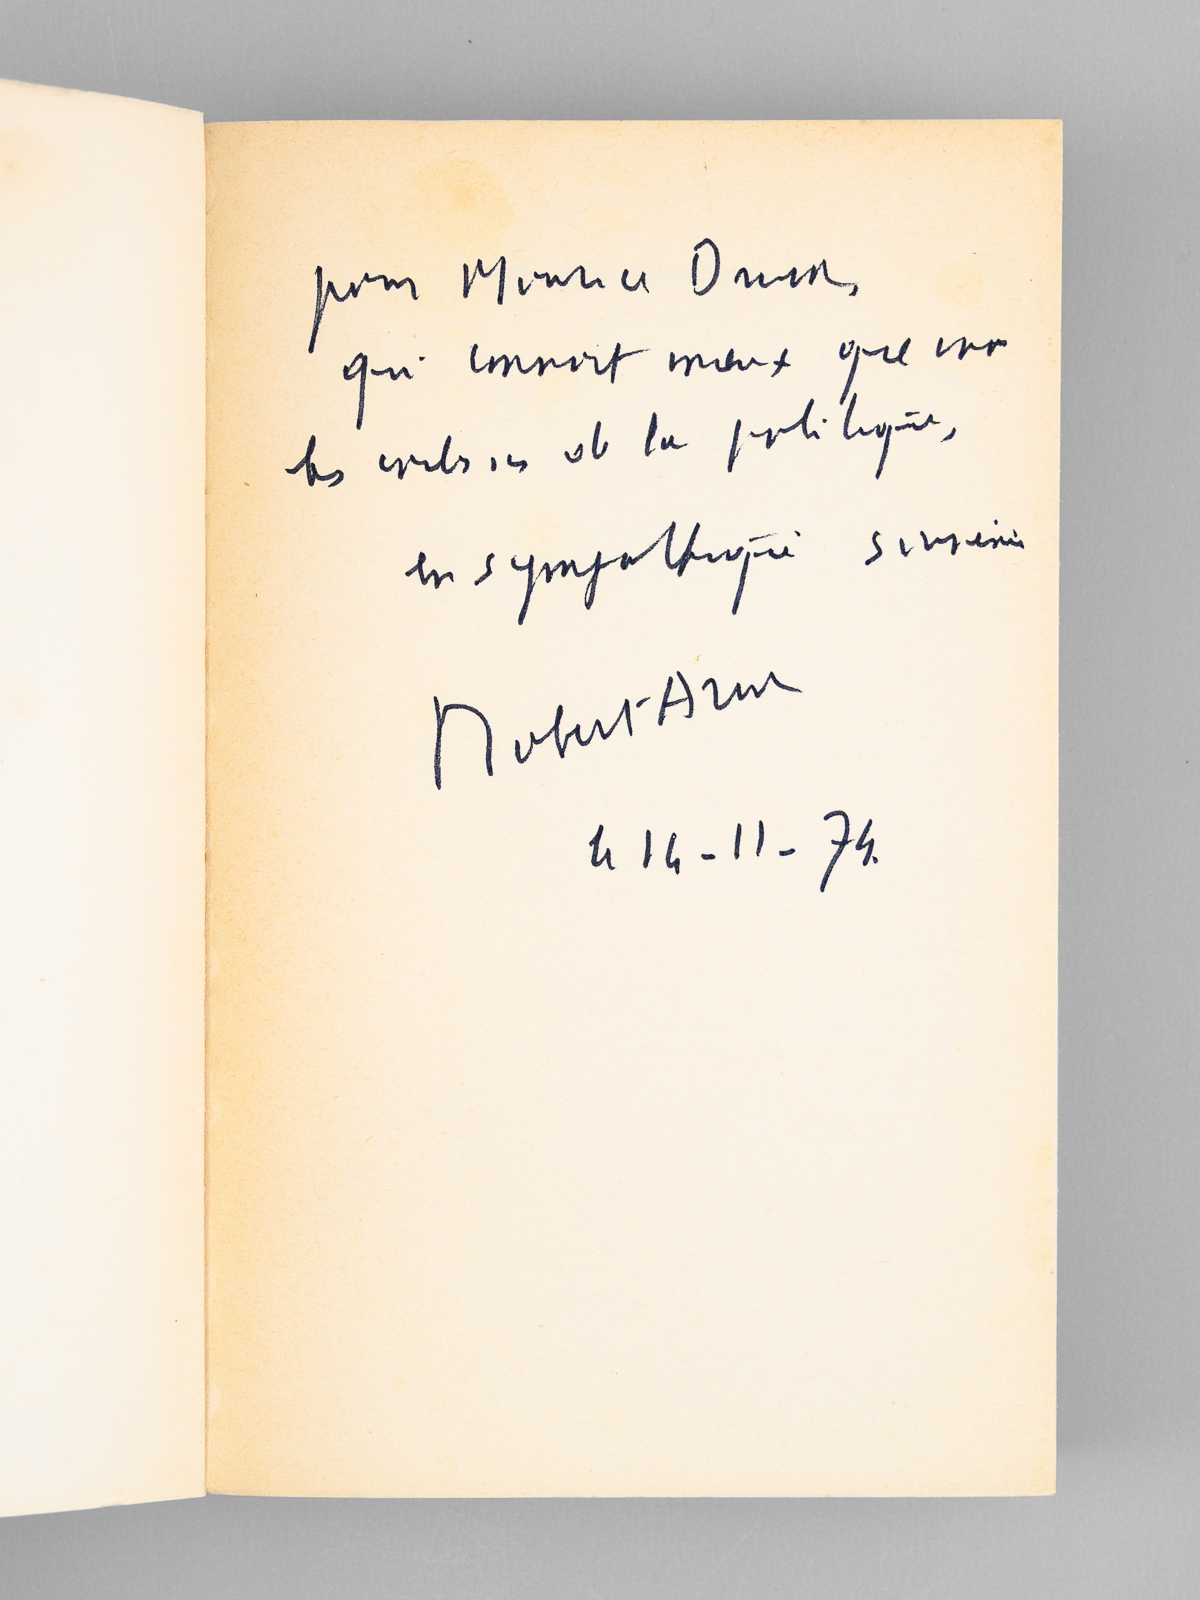 pour Maurice Druon,
qui connait mieux que moi
les coulisses de la politique,
en sympathique souvenir
Robert Aron
le 14-11-74.